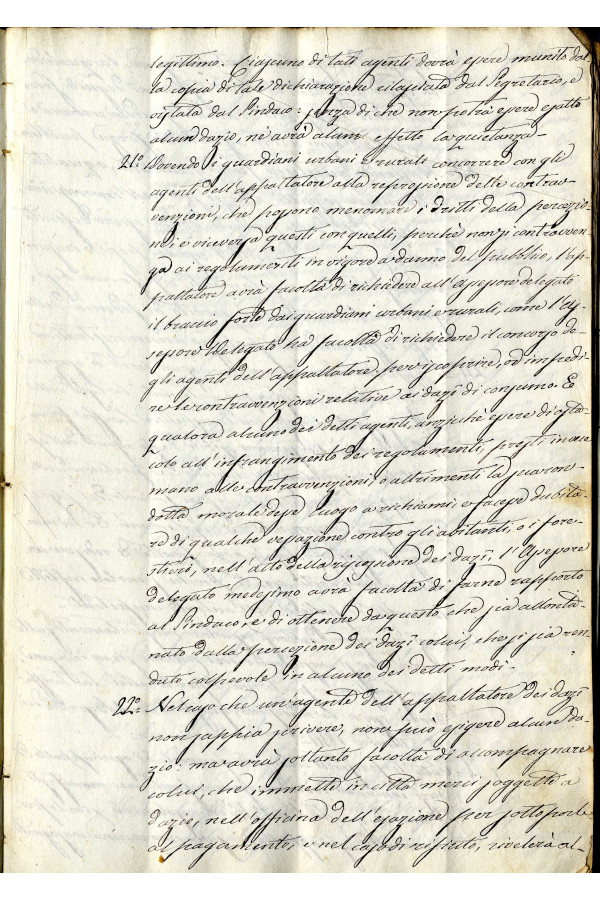 legittimo. Ciascuno di tali agenti dovrà essere munito del-
la copia di tale dichiarazione rilasciata dal Segretario, e
vistata dal Sindaco: senza di che non potrà essere esatto
alcun dazio, nè avrà alcun effetto la quietanza-
21.° Dovendo i guardiani urbani e rurali concorrere con gli
agenti dell'appaltatore alla repressione delle contrav-
venzioni, che possono menomare i dritti della percezio-
ne, e viceversa questi con quelli, perchè non si contravven-
ga ai regolamenti in vigore a danno del pubblico, l'ap-
paltatore avrà facoltà di richiedere all'Assessore delegato
il braccio forte dai guardiani urbani e rurali, come l'As-
sessore Delegato ha facoltà di richiedere il concorso de-
gli agenti dell'appaltatore, per iscoprire, od impedi-
re le contravvenzioni relative ai dazî di consumo. E
qualora alcuno dei detti agenti, anzichè essere di osta-
colo all'infrangimento dei regolamenti, presti invece
mano alle contravvenzioni, o altrimenti la sua con-
dotta morale desse luogo a richiami, e facesse dubita-
re di qualche vessazione contro gli abitanti, o i fore-
stieri, nell'atto della riscossione dei dazî, l'Assessore
delegato medesimo avrà facoltà di farne rapporto
al Sindaco e di ottenere da questo che sia allonta-
nato dalla percezione dei dazî colui, che si sia ren-
duto colpevole in alcuno dei detti modi-
22.° Nel caso che un'agente dell'appaltatore dei dazî
non sappia scrivere, non può esigere alcun da-
zio: ma avrà soltanto facoltà di accompagnare
colui, che immette in città merci soggette a
dazio, nell'officina dell'esazione per sottoporle
al pagamento, e nel caso di rifiuto, rivelerà al-